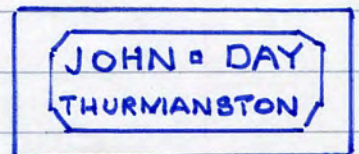 JOHN ▫ DAY
THURMANSTON